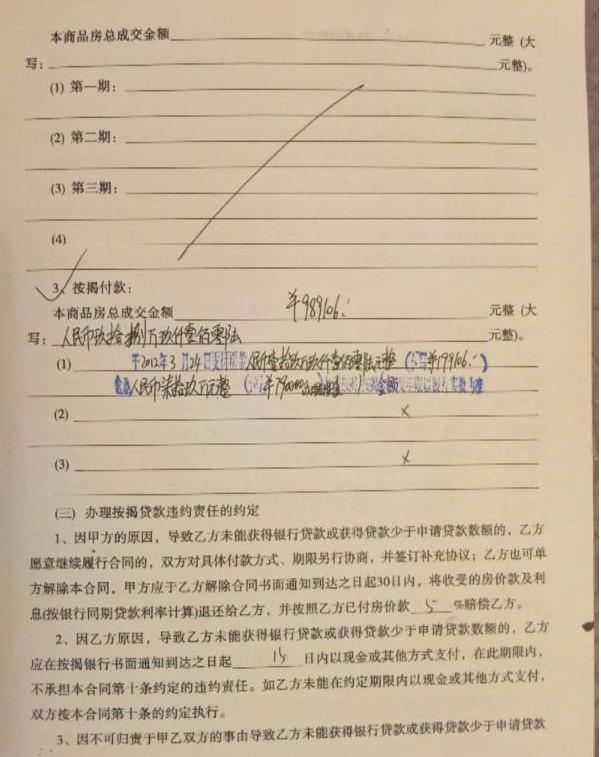 本商品房总成交金额 元整（大
写： 元整）。
(1) 第一期：
(2) 第二期：
(3) 第三期：
(4)
3、按揭付款：
本商品房总成交金额 ¥989106. 元整（大
写：人民币玖拾捌万玖仟壹佰零陆 元整）。
(1) 于2012年3月24日支付 人民币壹拾玖万玖仟壹佰零陆元整（小写¥199106.）
人民币柒拾玖万元整（小写¥790000 金额 以银行 为准
(2) ×
(3) ×
(三) 办理按揭贷款违约责任的约定
1、因甲方的原因，导致乙方未能获得银行贷款或获得贷款少于申请贷款数额的，乙方
愿意继续履行合同的，双方对具体付款方式、期限另行协商，并签订补充协议；乙方也可单
方解除本合同，甲方应于乙方解除合同书面通知到达之日起30日内，将收受的房价款及利
息(按银行同期贷款利率计算)退还给乙方，并按照乙方已付房价款 5 %赔偿乙方。
2、因乙方原因，导致乙方未能获得银行贷款或获得贷款少于申请贷款数额的，乙方
应在按揭银行书面通知到达之日起 15 日内以现金或其他方式支付，在此期限内，
不承担本合同第十条约定的违约责任。如乙方未能在约定期限内以现金或其他方式支付，
双方按本合同第十条的约定执行。
3、因不可归责于甲乙双方的事由导致乙方未能获得银行贷款或获得贷款少于申请贷款